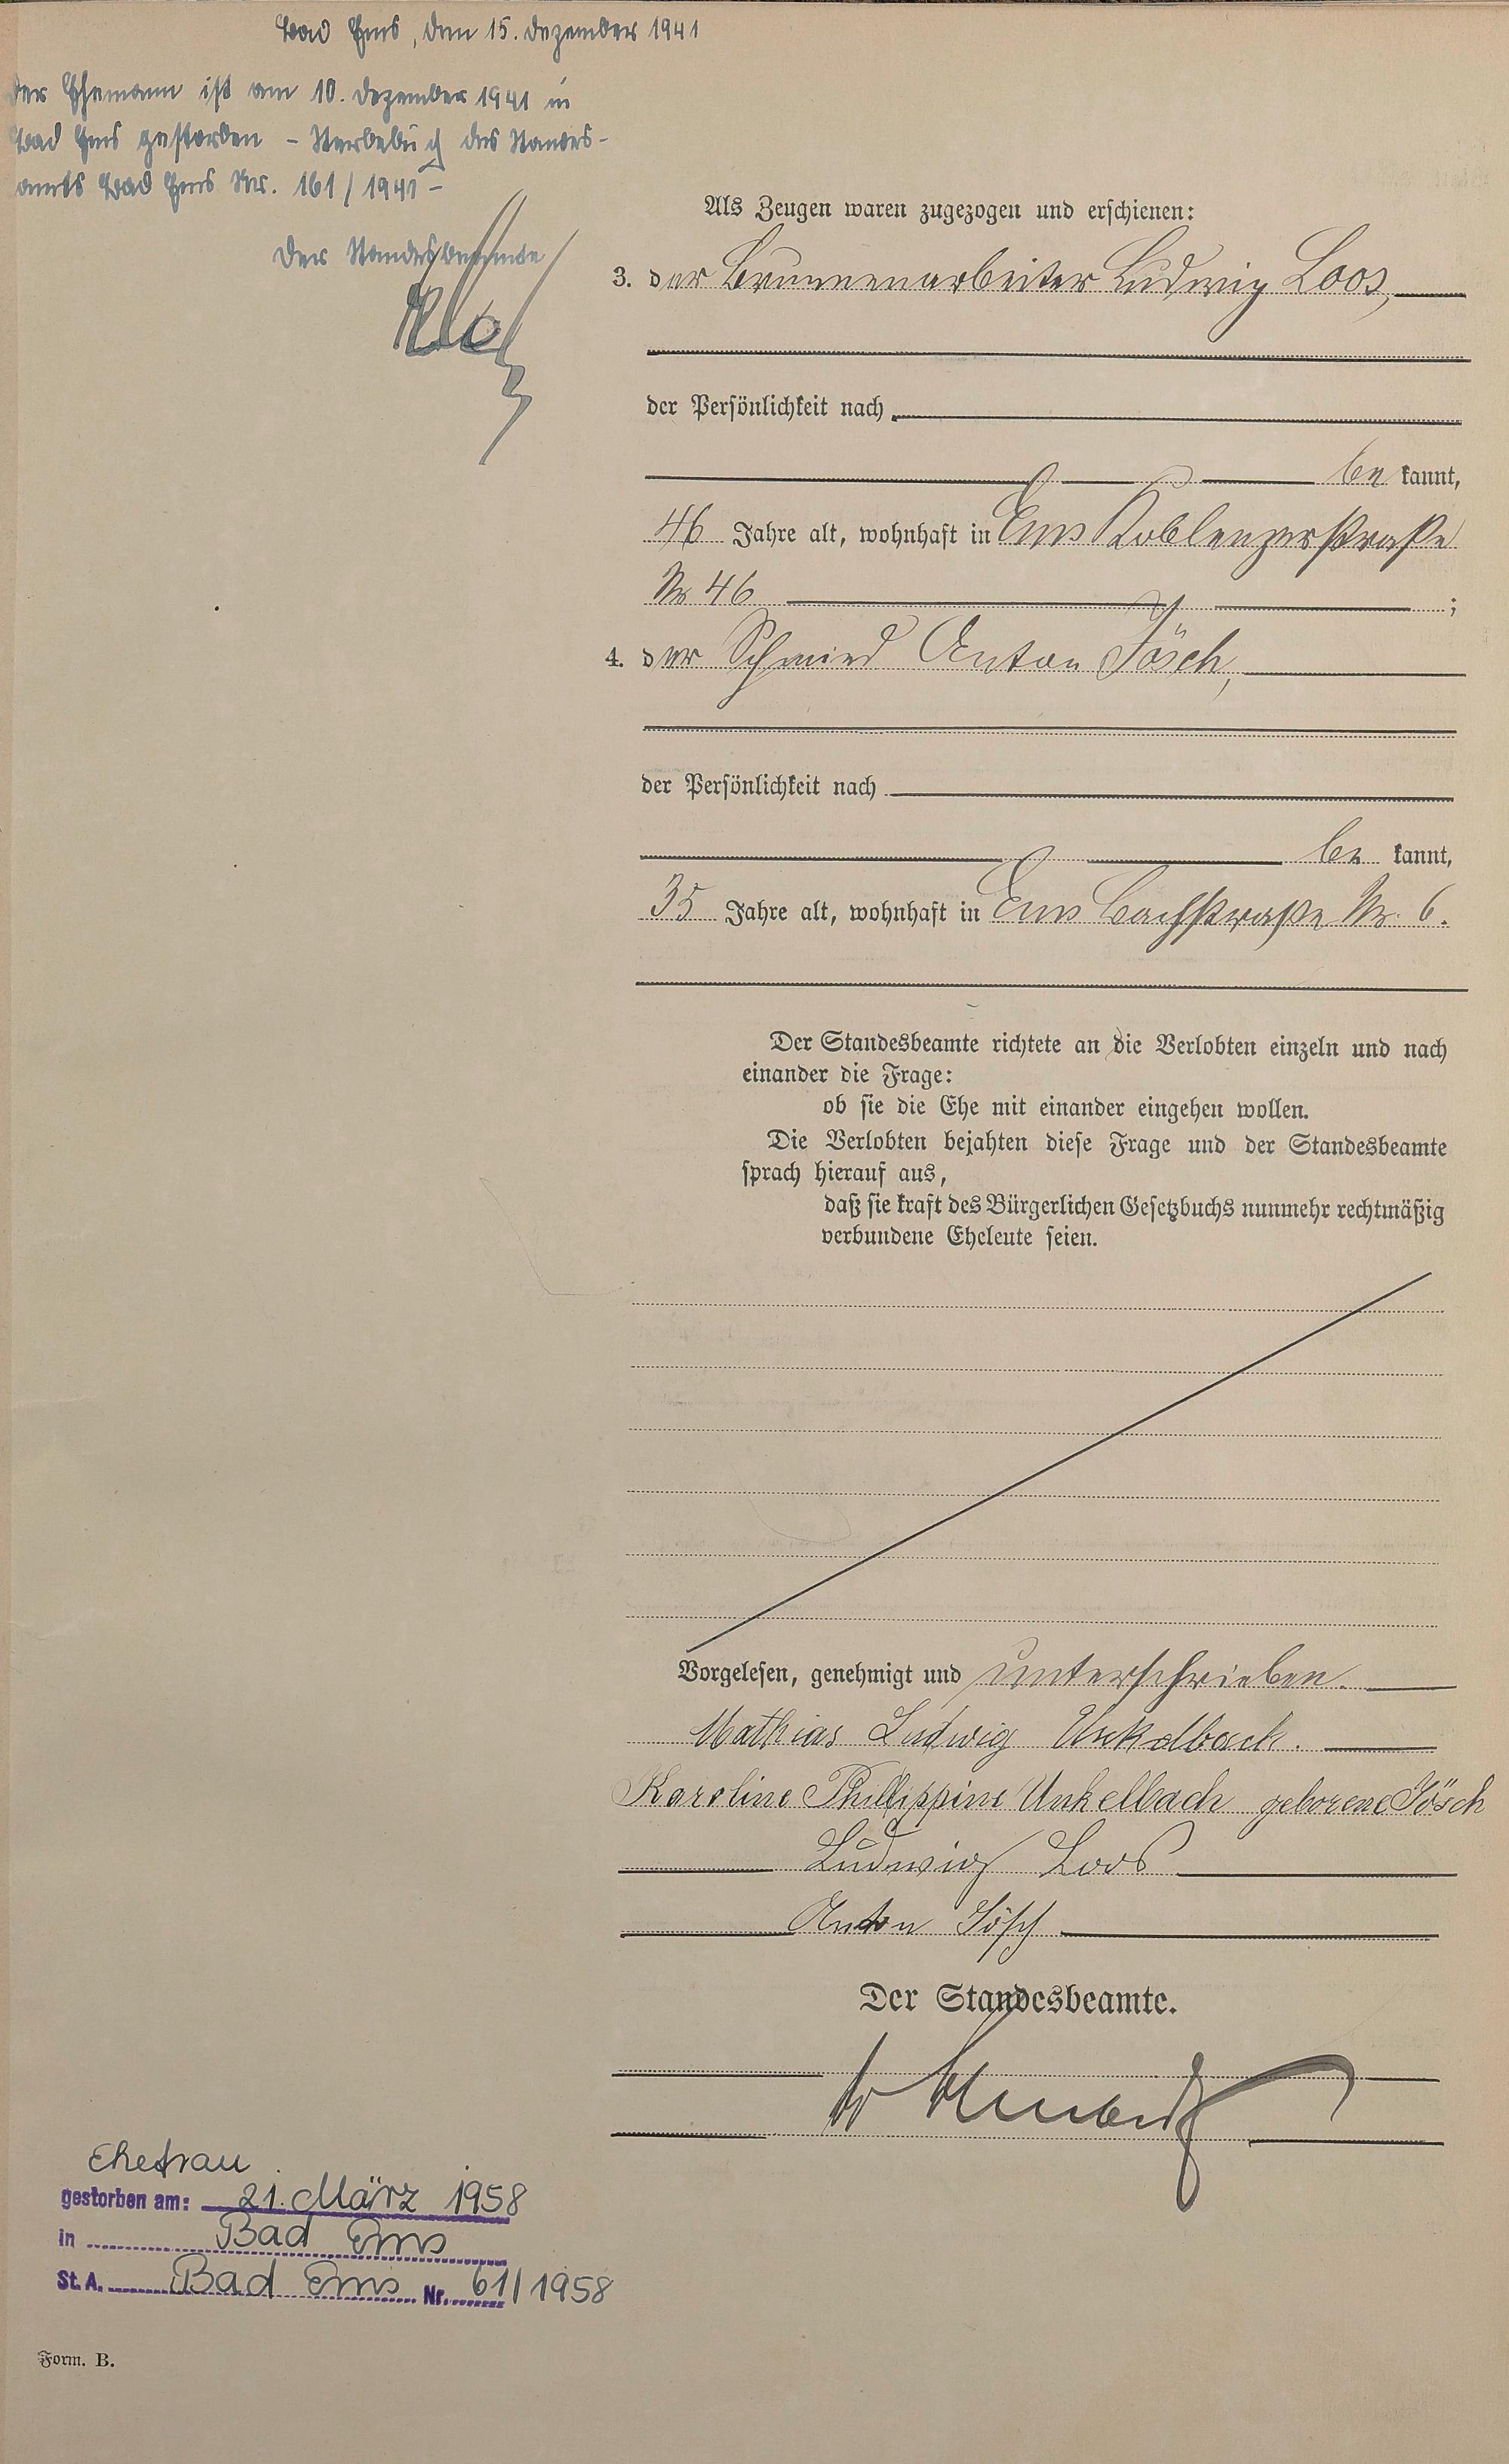 Bad Ems, den 15. Dezember 1941
Der Ehemann ist am 10. Dezember 1941 in
Bad Ems gestorben – Sterbebuch des Standes-
amts Bad Ems Nr. 161/1941 –
Der Standesbeamte
Als Zeugen waren zugezogen und erschienen:
3. der Brunnenarbeiter Ludwig Loos,
der Persönlichkeit nach
be kannt,
46 Jahre alt, wohnhaft in Ems Koblenzerstraße
Nr 46 ;
4. der Schmied Anton Jösch,
der Persönlichkeit nach
be kannt,
35 Jahre alt, wohnhaft in Ems Bachstraße Nr. 6.
Der Standesbeamte richtete an die Verlobten einzeln und nach
einander die Frage:
ob sie die Ehe mit einander eingehen wollen.
Die Verlobten bejahten diese Frage und der Standesbeamte
sprach hierauf aus,
daß sie kraft des Bürgerlichen Gesetzbuchs nunmehr rechtmäßig
verbundene Eheleute seien.
Vorgelesen, genehmigt und unterschrieben.
Mathias Ludwig Unkelbach.
Karoline Phillippine Unkelbach geborene Jösch
Ludwig Loos
Anton Jösch
Der Standesbeamte.
Ehefrau
gestorben am: 21. März 1958
in Bad Ems
St. A. Bad Ems Nr. 61/1958
Form. B.